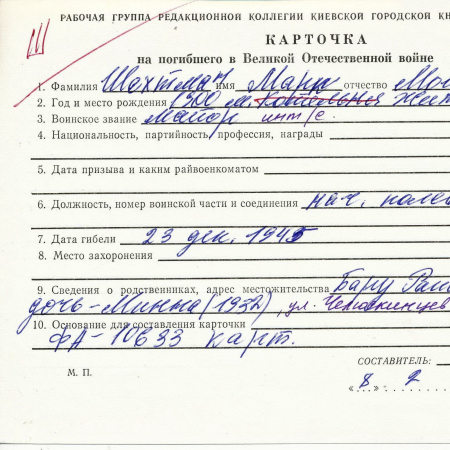 Ш
РАБОЧАЯ ГРУППА РЕДАКЦИОННОЙ КОЛЛЕГИИ КИЕВСКОЙ ГОРОДСКОЙ КН
КАРТОЧКА
на погибшего в Великой Отечественной войне
1. Фамилия Шохтман имя Марк отчество Мои
2. Год и место рождения 1900 м. Жит
3. Воинское звание майор инт/с.
4. Национальность, партийность, профессия, награды
5. Дата призыва и каким райвоенкоматом
6. Должность, номер воинской части и соединения нач. полев
7. Дата гибели 23 дек. 1945
8. Место захоронения
9. Сведения о родственниках, адрес местожительства Бару
дочь-Минна (1932), ул. Челюскинцев
10. Основание для составления карточки
ФА-10633 карт.
СОСТАВИТЕЛЬ:
М. П.
„8" 2